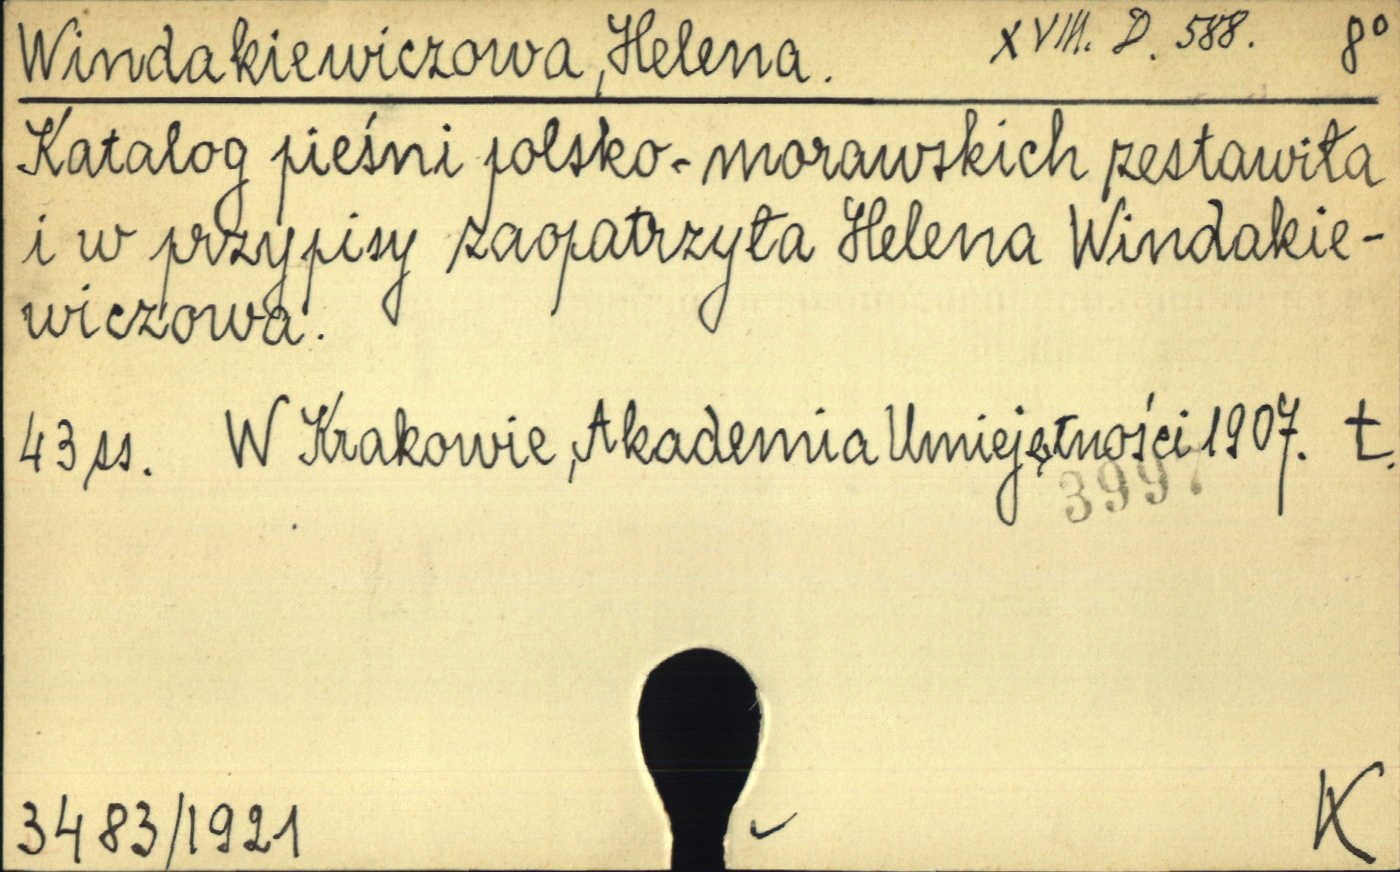 Windakiewiczowa, Helena. XVIII. D. 588. 8°
Katalog pieśni polsko-morawskich zestawiła
i w przypisy zaopatrzyła Helena Windakie-
wiczowa.
43 ss. W Krakowie, Akademia Umiejętności 1907. t.
3997
3483/1921
K